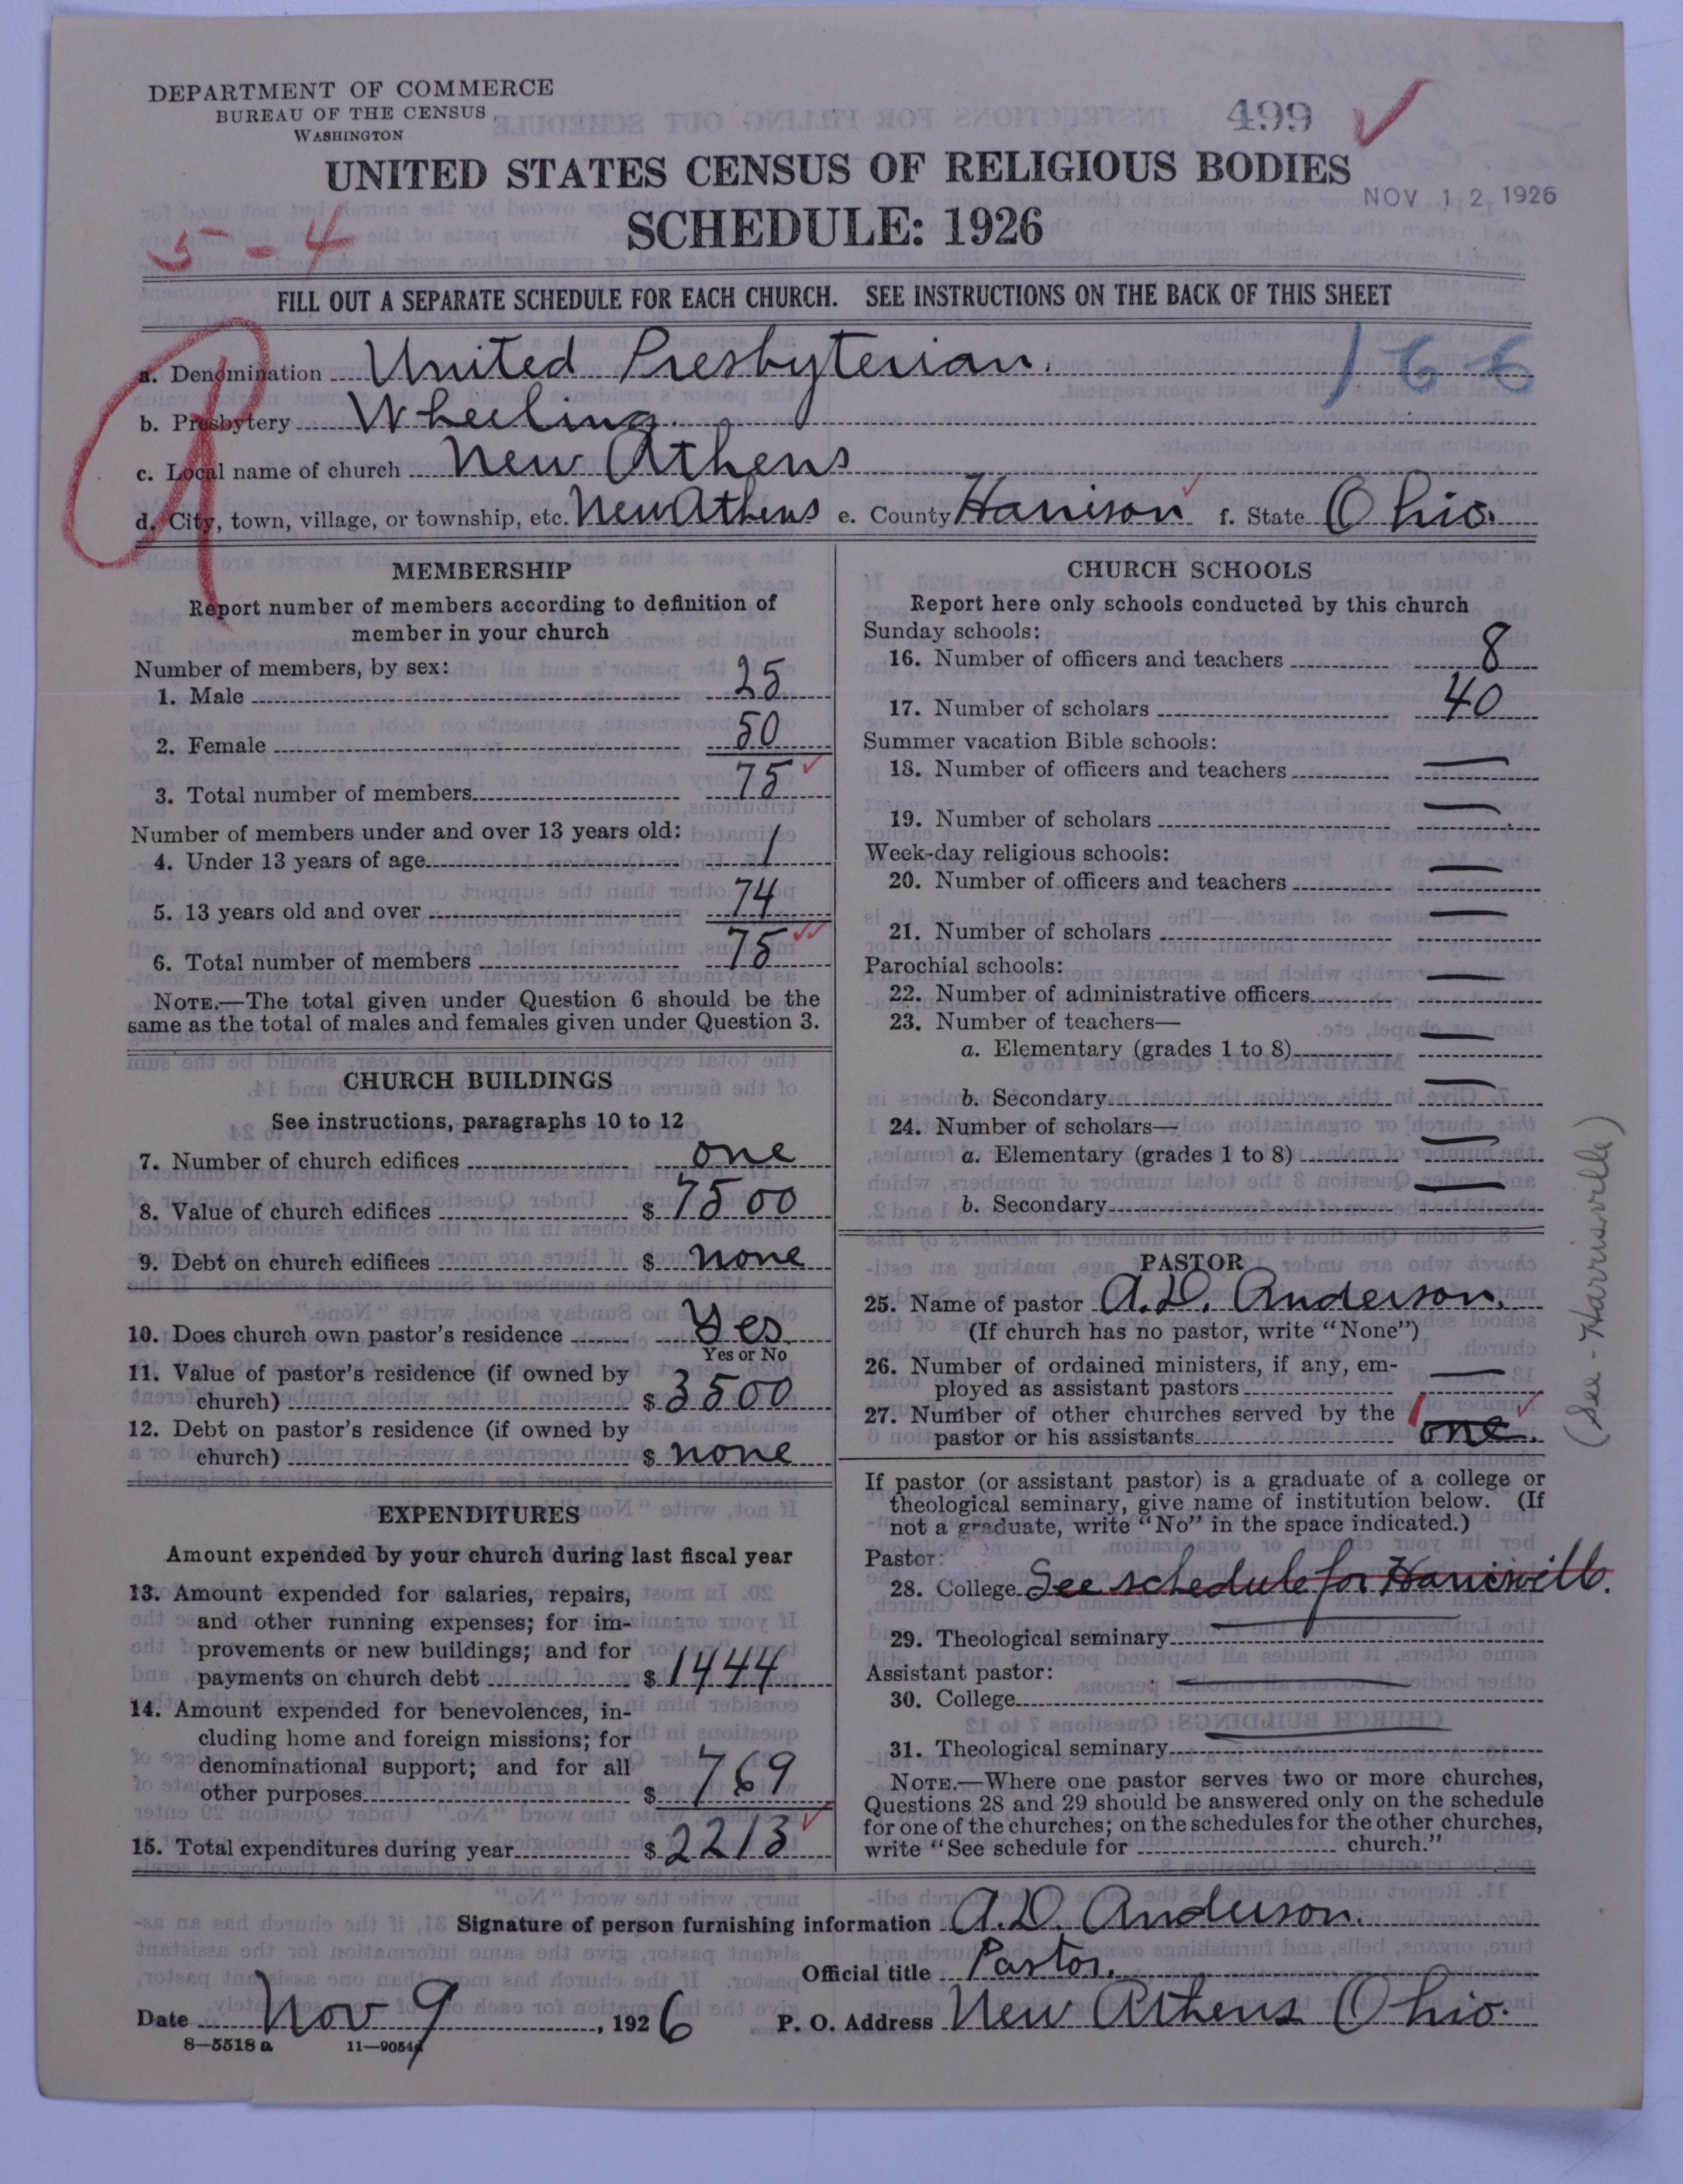 DEPARTMENT OF COMMERCE
BUREAU OF THE CENSUS
WASHINGTON
499
UNITED STATES CENSUS OF RELIGIOUS BODIES
NOV 12 1926
SCHEDULE: 1926
5-4
FILL OUT A SEPARATE SCHEDULE FOR EACH CHURCH. SEE INSTRUCTIONS ON THE BACK OF THIS SHEET
a. Denomination United Presbyterian.
166
b. Presbytery Wheeling.
c. Local name of church New Athens
d. City, town, village, or township, etc. New Athens e. County Harrison f. State Ohio.
MEMBERSHIP
Report number of members according to definition of
member in your church
Number of members, by sex:
1. Male 25
2. Female 50
3. Total number of members 75
Number of members under and over 13 years old:
4. Under 13 years of age 1
5. 13 years old and over 74
6. Total number of members 75
NOTE.—The total given under Question 6 should be the
same as the total of males and females given under Question 3.
CHURCH BUILDINGS
See instructions, paragraphs 10 to 12
7. Number of church edifices one
8. Value of church edifices $ 7500
9. Debt on church edifices $ none
10. Does church own pastor's residence Yes
Yes or No
11. Value of pastor's residence (if owned by
church) $ 3500
12. Debt on pastor's residence (if owned by
church) $ none
EXPENDITURES
Amount expended by your church during last fiscal year
13. Amount expended for salaries, repairs,
and other running expenses; for im-
provements or new buildings; and for
payments on church debt $ 1444
14. Amount expended for benevolences, in-
cluding home and foreign missions; for
denominational support; and for all
other purposes $ 769
15. Total expenditures during year $ 2213
CHURCH SCHOOLS
Report here only schools conducted by this church
Sunday schools:
16. Number of officers and teachers 8
17. Number of scholars 40
Summer vacation Bible schools:
18. Number of officers and teachers —
19. Number of scholars —
Week-day religious schools:
20. Number of officers and teachers —
21. Number of scholars —
Parochial schools:
22. Number of administrative officers —
23. Number of teachers—
a. Elementary (grades 1 to 8) —
b. Secondary —
24. Number of scholars—
a. Elementary (grades 1 to 8) —
b. Secondary —
PASTOR
25. Name of pastor A.D. Anderson.
(If church has no pastor, write "None")
26. Number of ordained ministers, if any, em-
ployed as assistant pastors —
27. Number of other churches served by the 1
pastor or his assistants one.
If pastor (or assistant pastor) is a graduate of a college or
theological seminary, give name of institution below. (If
not a graduate, write "No" in the space indicated.)
Pastor:
28. College See schedule for Harrisville.
29. Theological seminary —
Assistant pastor:
30. College —
31. Theological seminary —
NOTE.—Where one pastor serves two or more churches,
Questions 28 and 29 should be answered only on the schedule
for one of the churches; on the schedules for the other churches,
write "See schedule for church."
(See - Harrisville)
Signature of person furnishing information A.D. Anderson.
Official title Pastor.
Date Nov 9, 1926 P. O. Address New Athens Ohio.
8—5518 a 11—9054